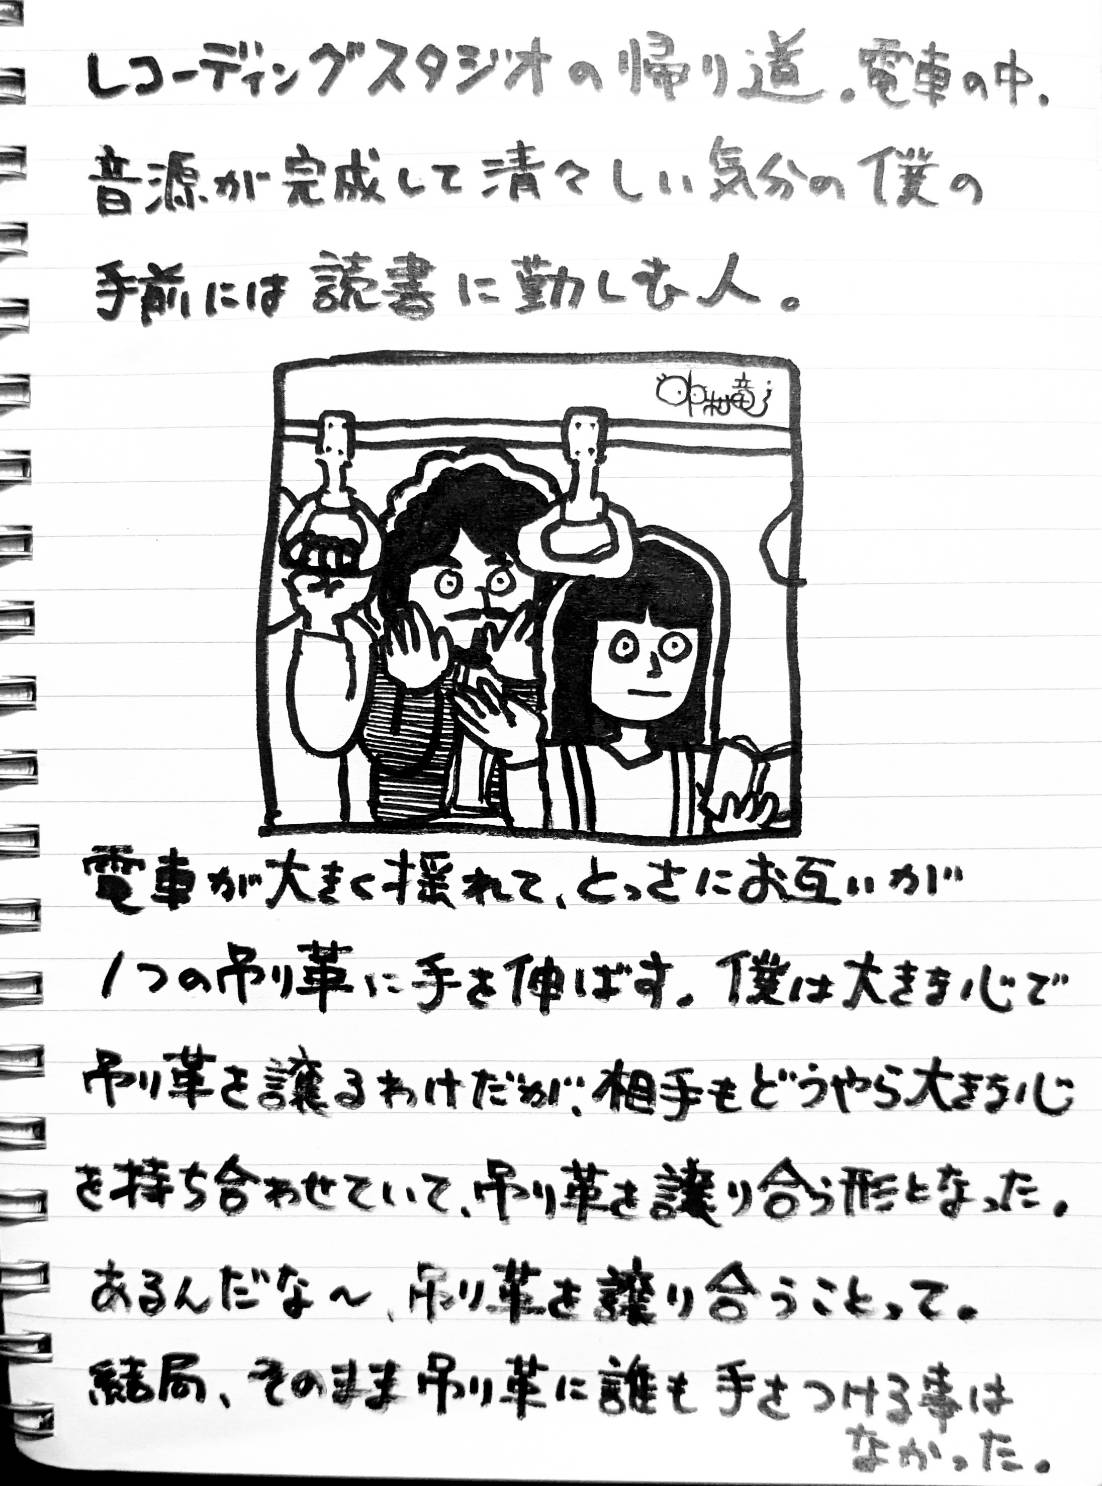 レコーディングスタジオの帰り道。電車の中、
音源が完成して清々しい気分の僕の
手前には読書に勤しむ人。
中村竜
電車が大きく揺れて、とっさにお互いが
1つの吊り革に手を伸ばす。僕は大きな心で
吊り革を譲るわけだが、相手もどうやら大きな心
を持ち合わせていて、吊り革を譲り合う形となった。
あるんだな〜、吊り革を譲り合うことって。
結局、そのまま吊り革に誰も手をつける事は
なかった。